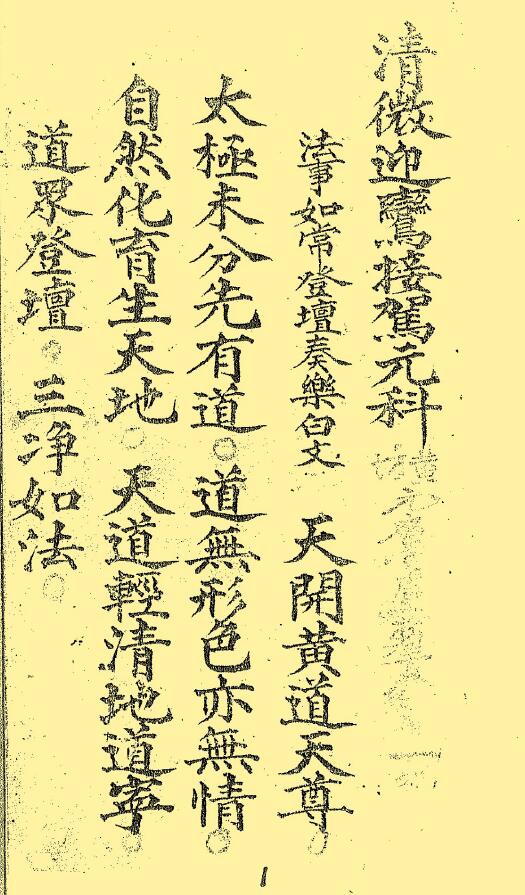 清微迎鸞接駕元科
法事如常登壇奏樂白文 天開黄道天尊○
太極未分先有道○道無形色亦無情○
自然化育生天地○天道輕清地道寧○
道眾登壇○三净如法○
1